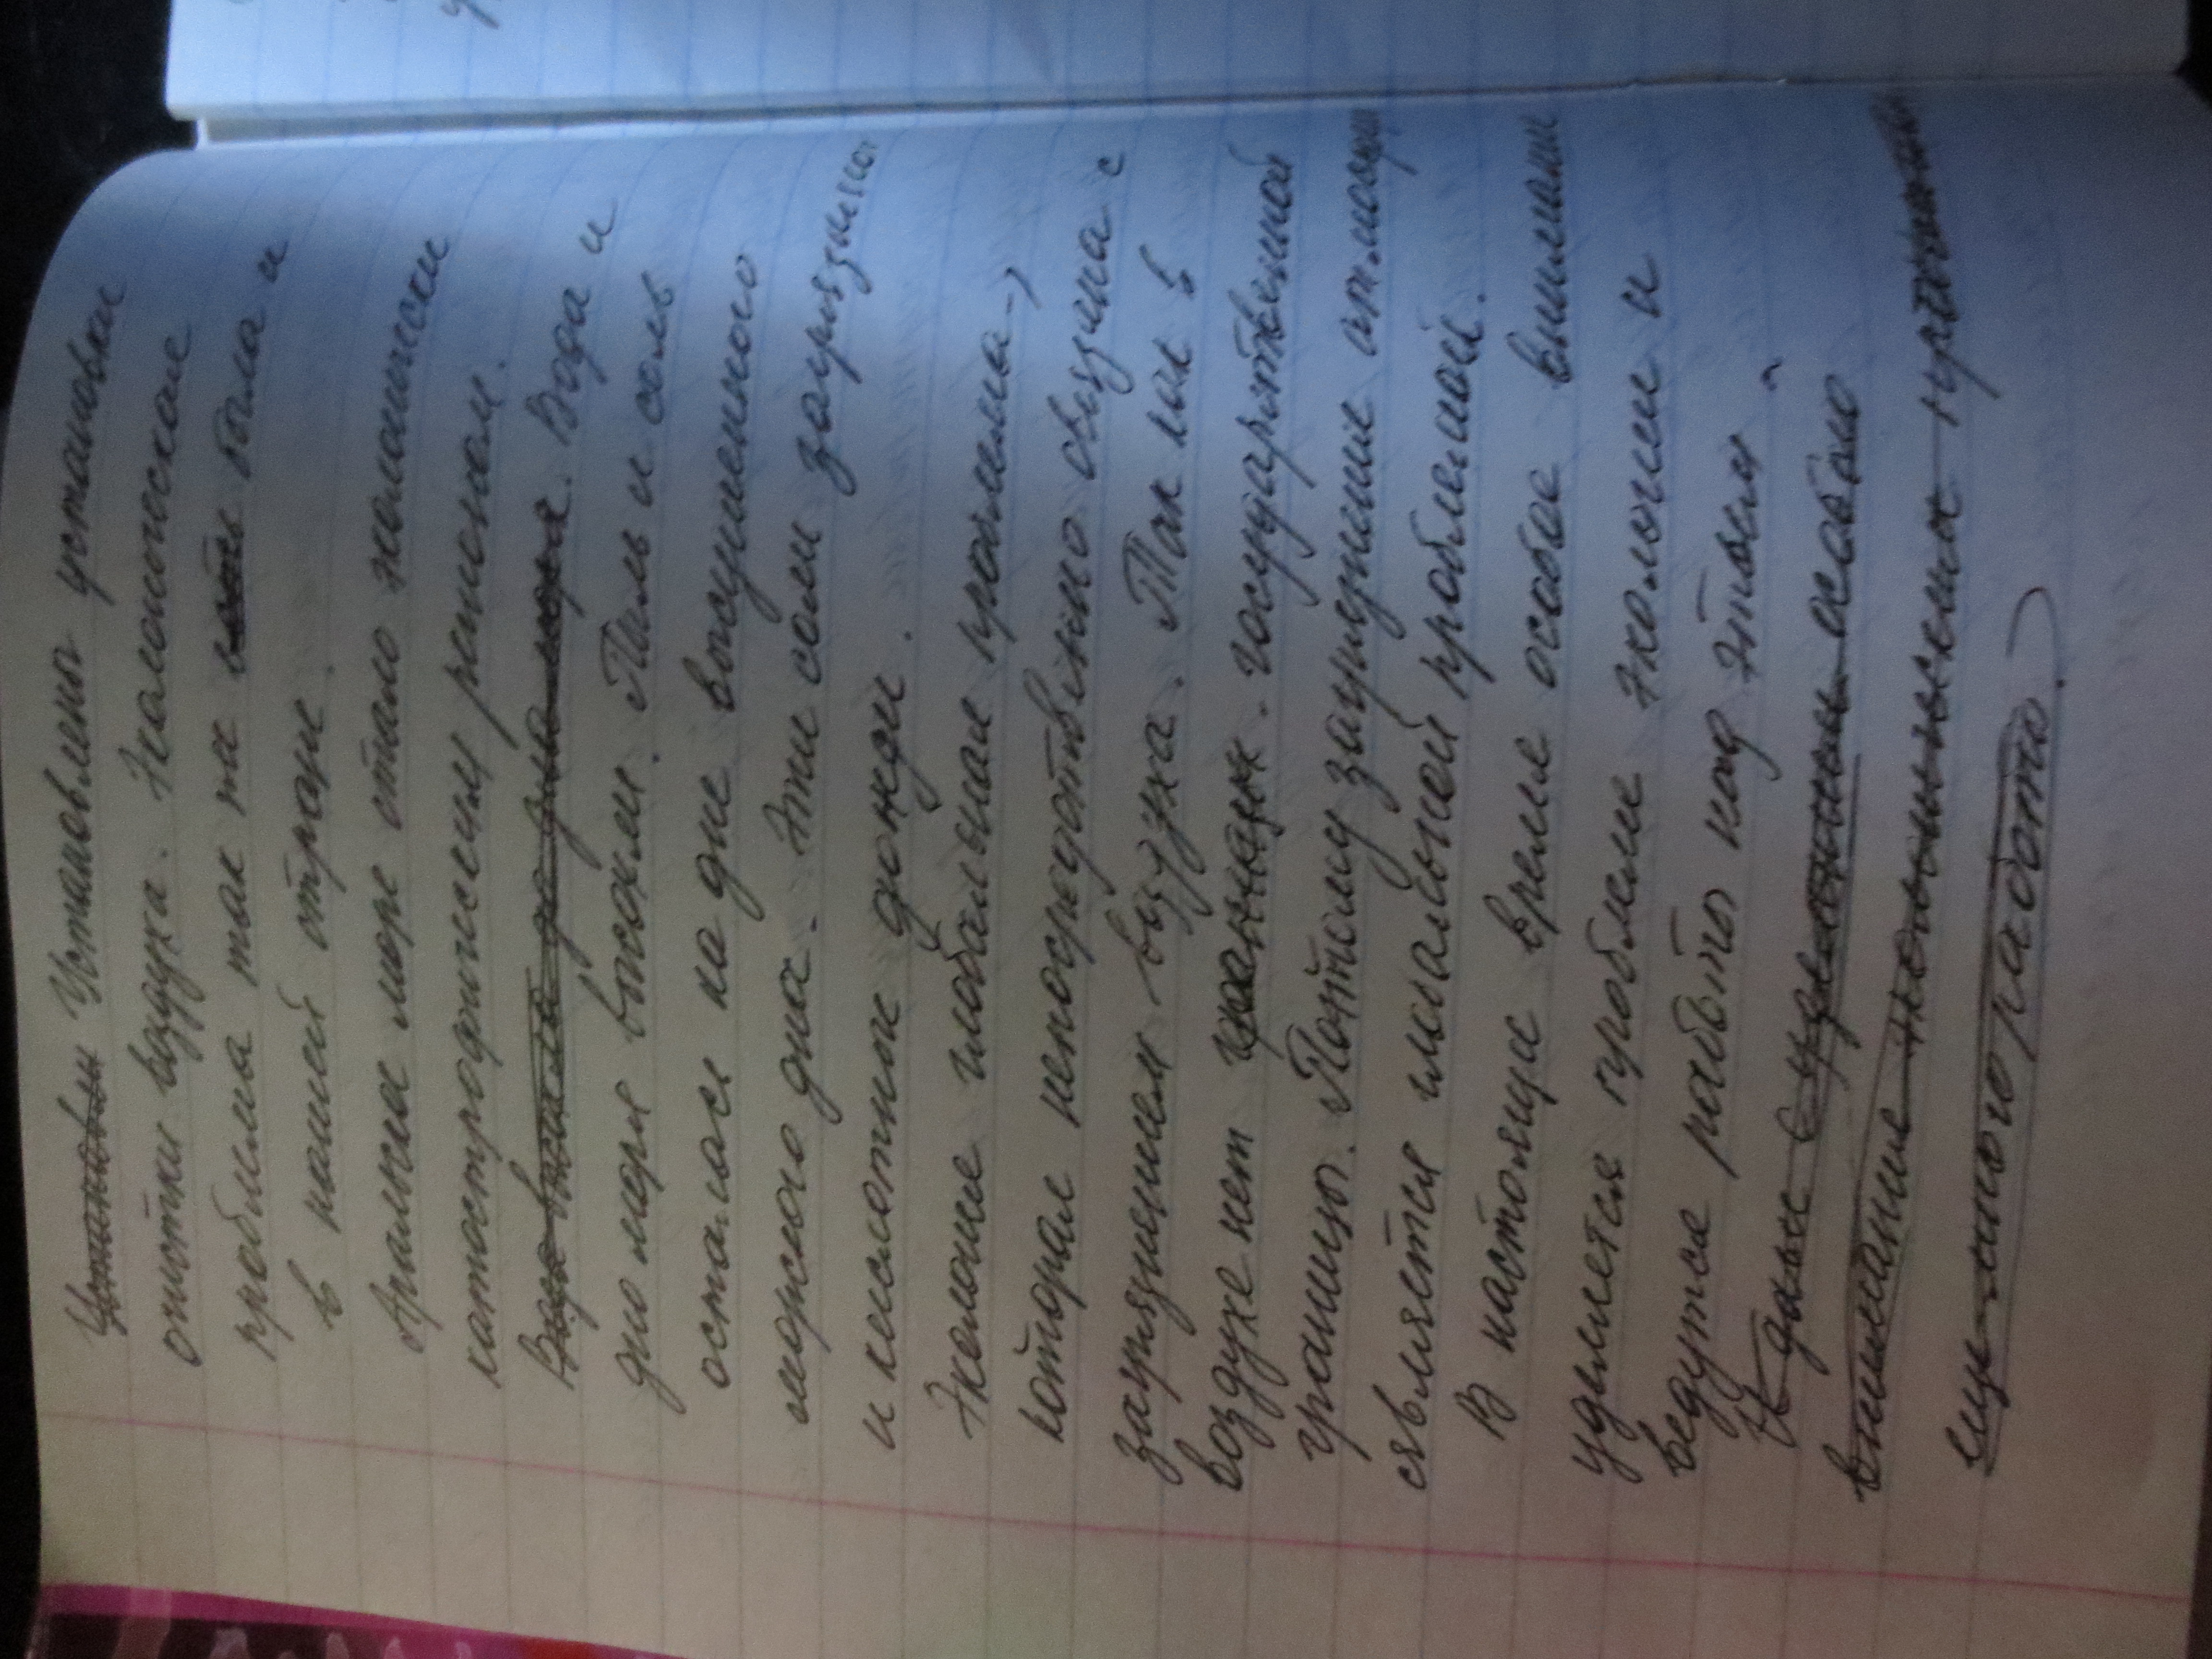 Установлены установки
очистки воздуха. Экологическая
проблема так же была и
в нашей стране.
Аральское море стало экологически
катастрофическим регионом.
Вода и
дно моря высохли. Пыль и соль
осталась на дне высушенного
морского дна. Эти соли загрязняют
и кислотные дожди.
Экология глобальная проблема,
которая непосредственно связана с
загрязнением воздуха. Так как в
воздухе нет государственной
границы. Поэтому загрязнение атмосферы
является глобальной проблемой.
В настоящее время особое внимание
уделяется проблеме экологии и
ведутся работы над этим.
К
внимание
много работы.